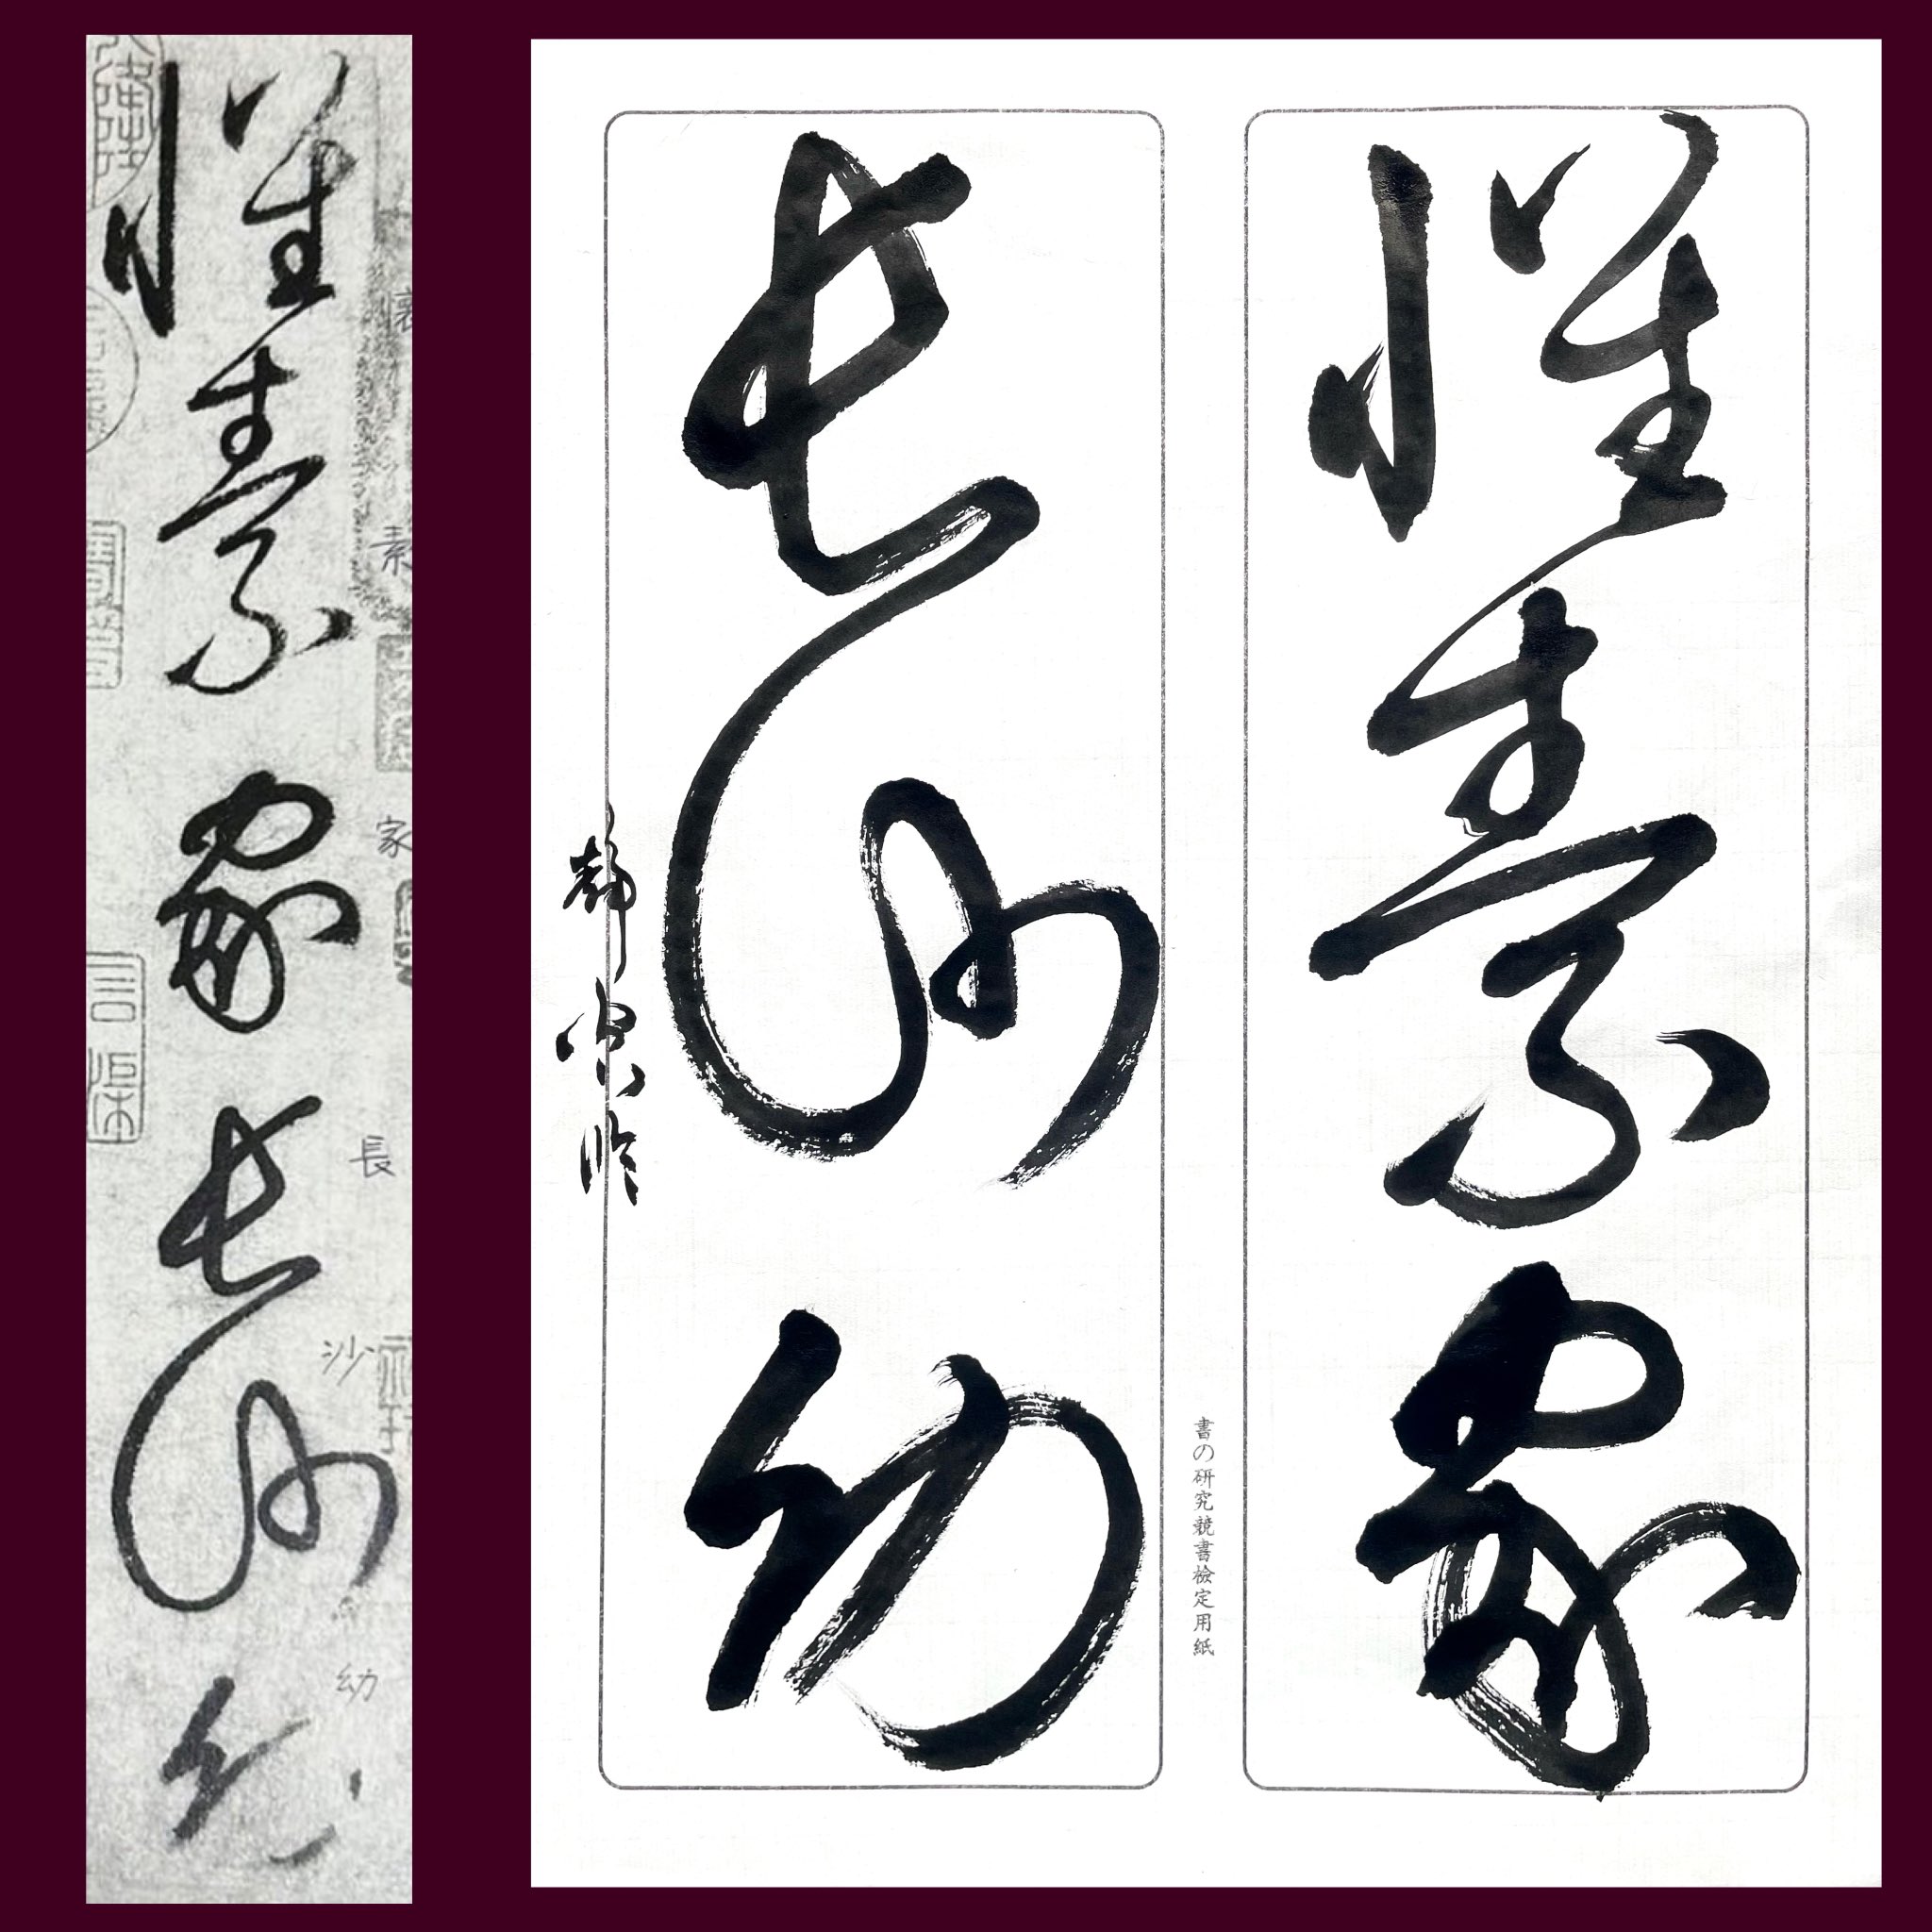 懐素家
長沙幼
書の研究競書検定用紙
懐素家長沙幼
懐
素
家
長
沙
幼